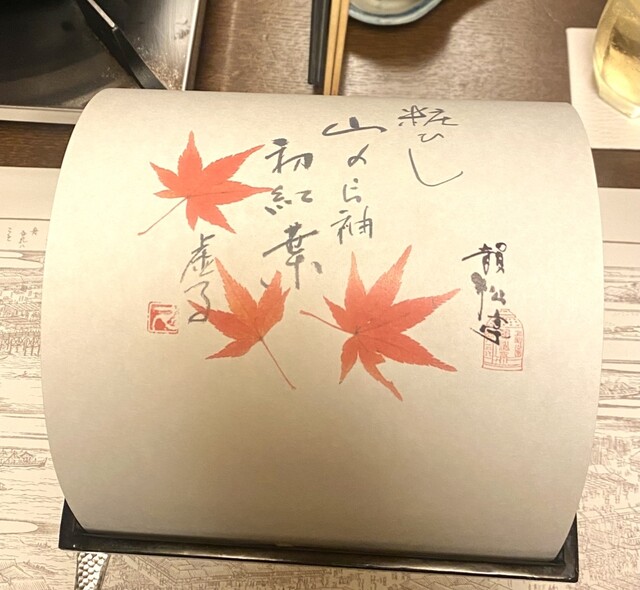 韻松亭
粧ひし
山の片袖
初紅葉
虚子